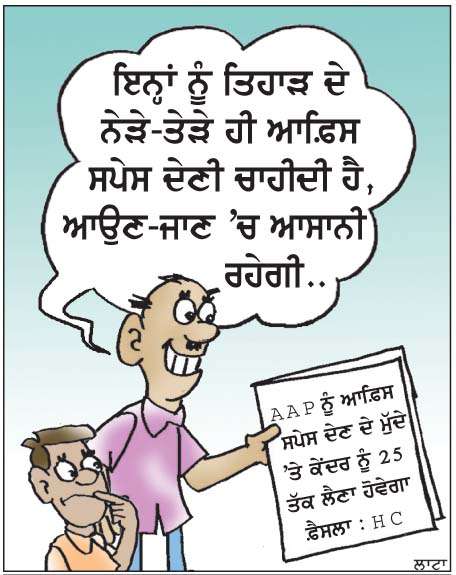 ਇਨ੍ਹਾਂ ਨੂੰ ਤਿਹਾੜ ਦੇ
ਨੇੜੇ-ਤੇੜੇ ਹੀ ਆਫ਼ਿਸ
ਸਪੇਸ ਦੇਣੀ ਚਾਹੀਦੀ ਹੈ,
ਆਉਣ-ਜਾਣ ’ਚ ਆਸਾਨੀ
ਰਹੇਗੀ..
AAP ਨੂੰ ਆਫ਼ਿਸ
ਸਪੇਸ ਦੇਣ ਦੇ ਮੁੱਦੇ
’ਤੇ ਕੇਂਦਰ ਨੂੰ 25
ਤੱਕ ਲੈਣਾ ਹੋਵੇਗਾ
ਫ਼ੈਸਲਾ : HC
ਲਾਟਾ